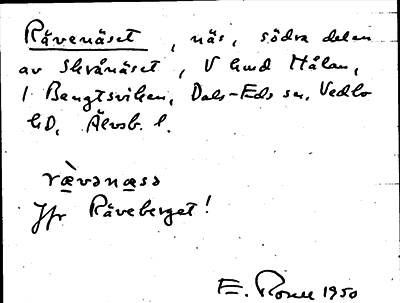 Rävenäset, näs, södra delen
av Skrånäset, V
I Bengtsviken, Dals-Eds sn, Vedbo
hd, Älvsb. l.
rævənæsə
Jfr Räveberget!
E. 1950